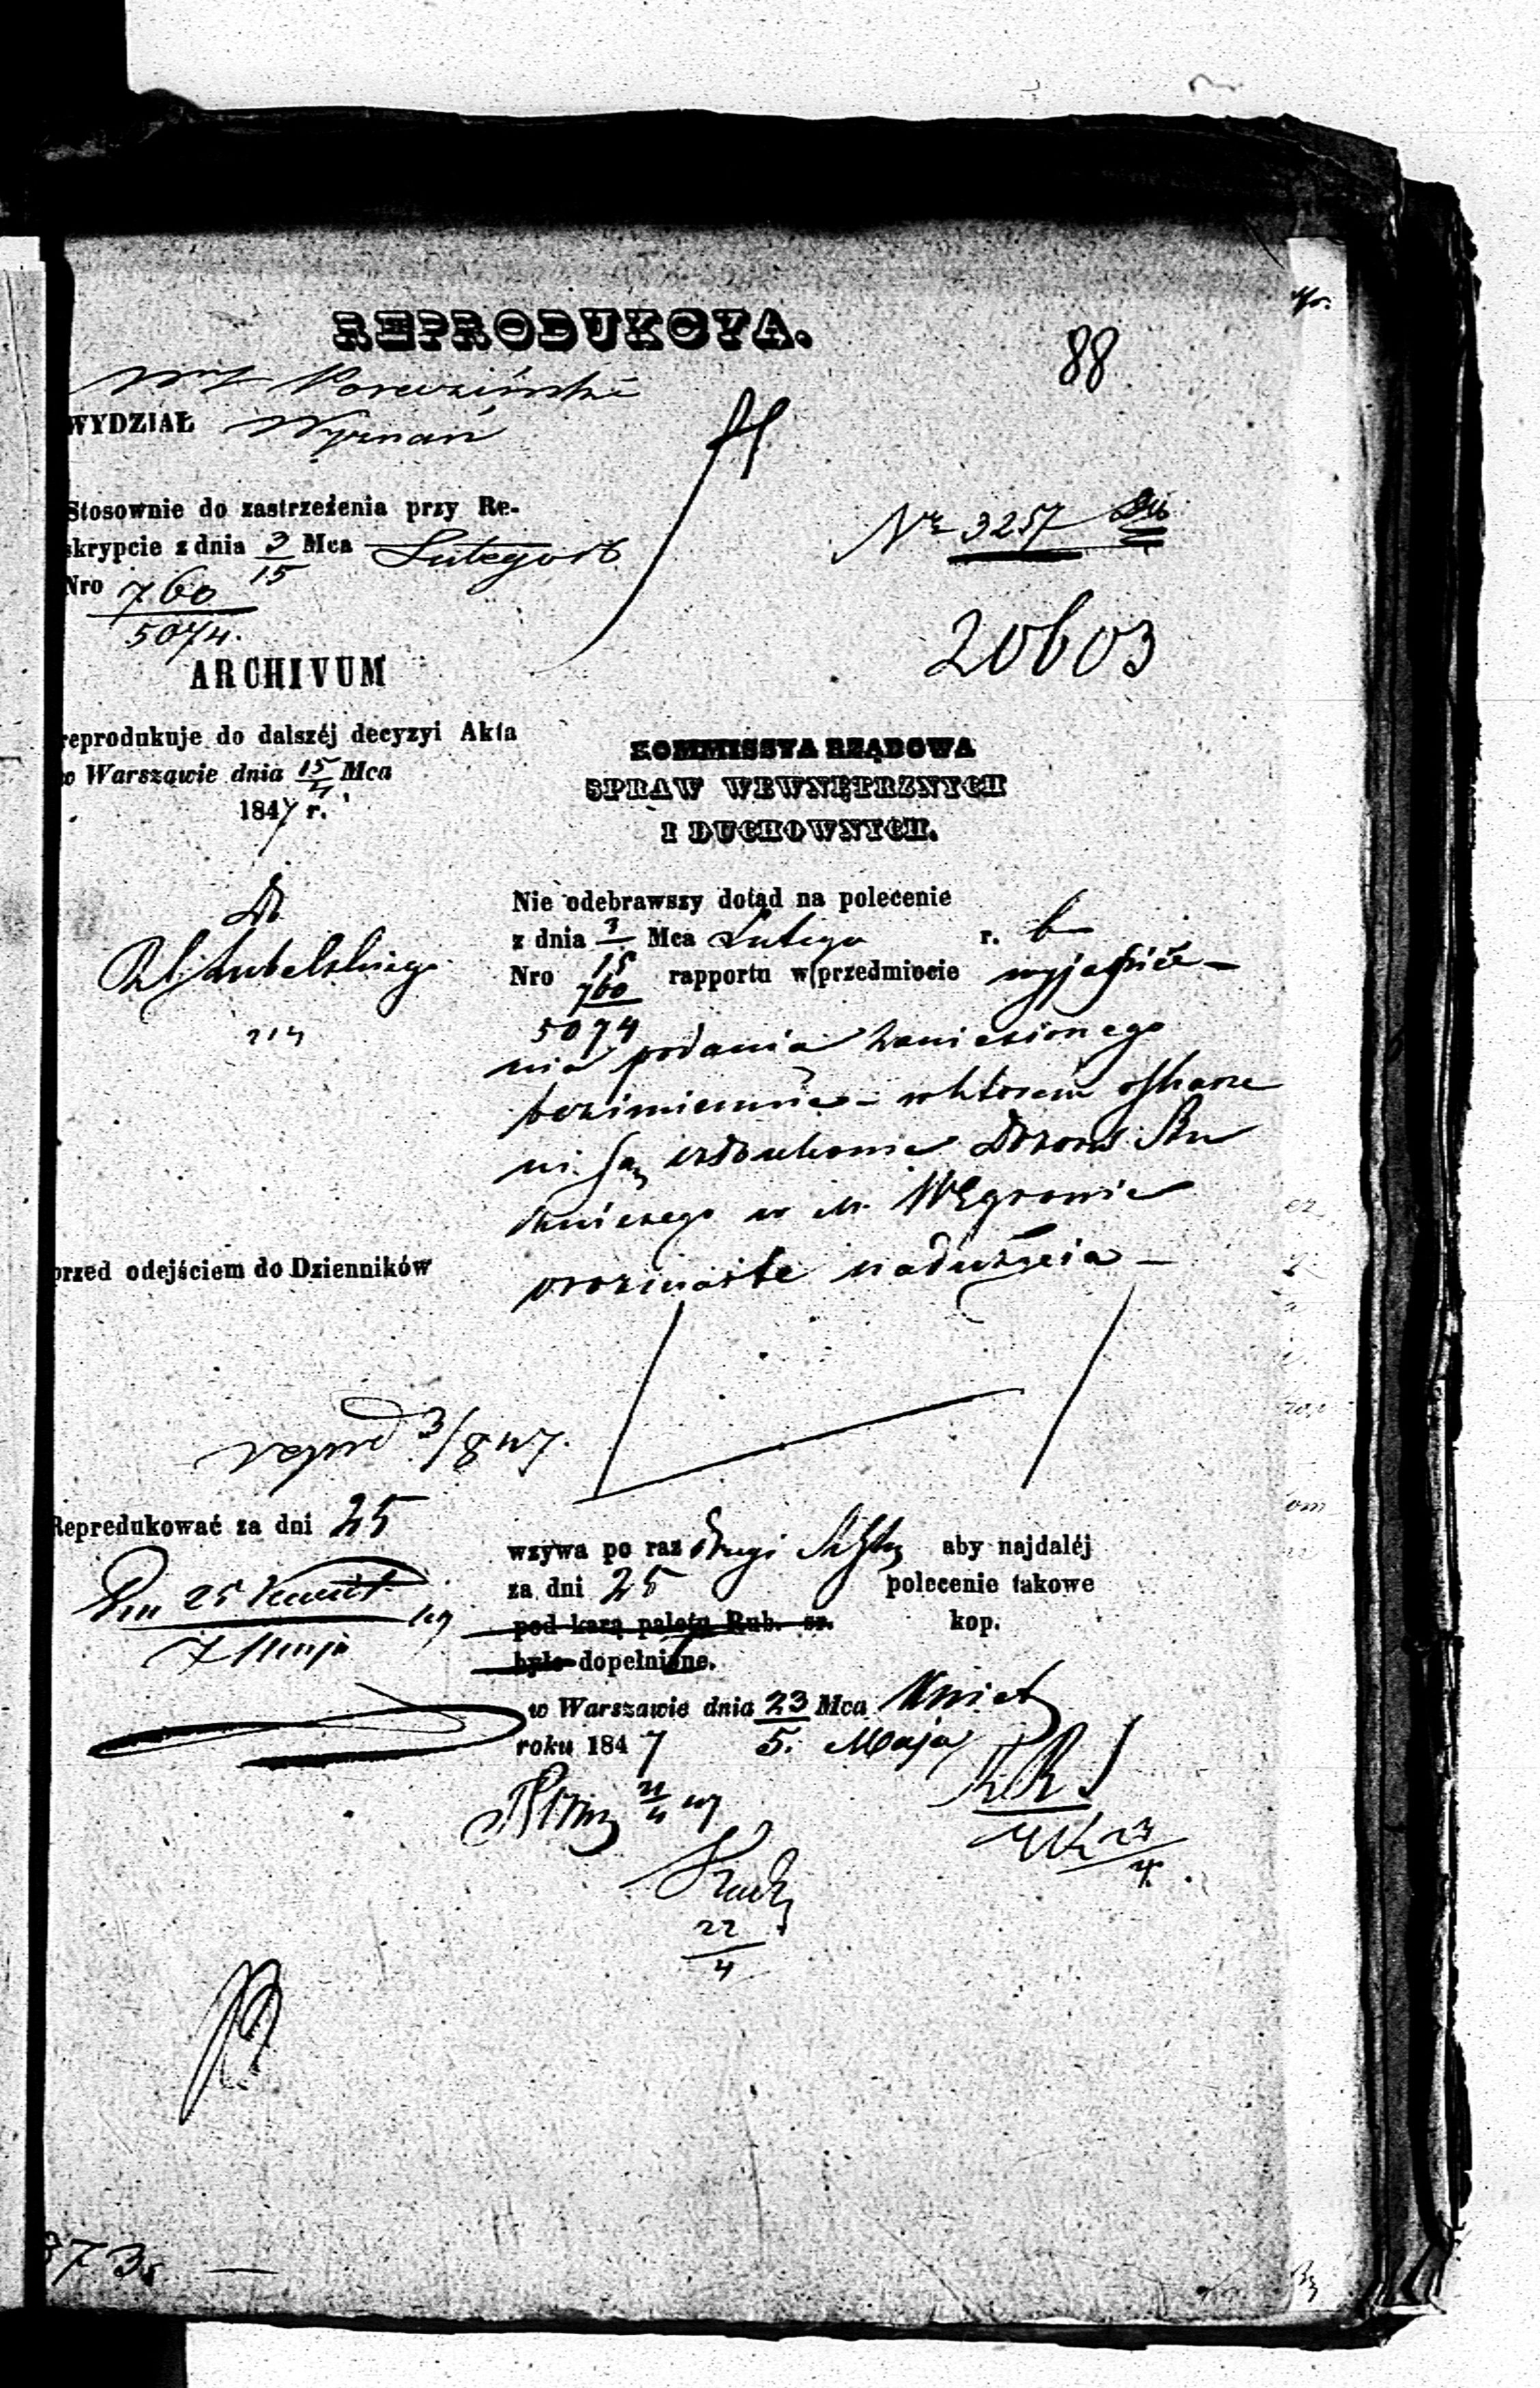 REPRODUKCYA.
88
WYDZIAŁ Wyznań
Stosownie do zastrzeżenia przy Re-
skrypcie z dnia 3/15 Mca Lutego r b
Nro 760/5074.
Nr 3257
20603
ARCHIVUM
reprodukuje do dalszéj decyzyi Akta
w Warszawie dnia 15/4 Mca
1847 r.
KOMMISSYA RZĄDOWA
SPRAW WEWNĘTRZNYCH
I DUCHOWNYCH.
Do
Lubelskiego
Nie odebrawszy dotąd na polecenie
z dnia 3/15 Mca Lutego r. b
Nro 760/5074 rapportu w przedmiocie wyjaśnie-
nia podania zaniesionego
bezimiennie - w którem oskarże
ni są członkowie Dozoru Bu
żniczego w M. Węgrowie
o rozmaite nadużycia -
przed odejściem do Dzienników
Repredukować za dni 25
Dn 25 Kwiet
7 Maja
wzywa po raz drugi aby najdaléj
za dni 25 polecenie takowe
pod karą paletu Rub. sr. kop.
było dopełnione.
w Warszawie dnia 23 Mca Kwiet
roku 1847 5. Maja
21/4 47
23/4
22/4